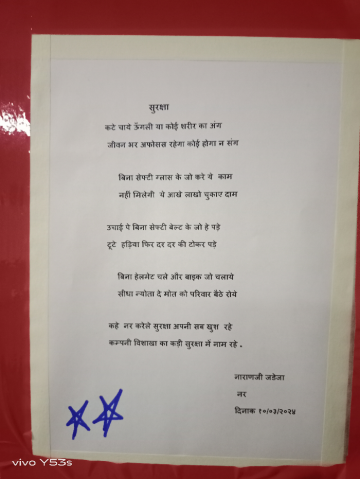 सुरक्षा
कटे चाये ऊँगली या कोई शरीर का अंग
जीवन भर अफोसस रहेगा कोई होगा न संग
बिना सेफ्टी ग्लास के जो करे ये काम
नहीं मिलेगी ये आखें लाखो चुकाए दाम
उचाई पे बिना सेफ्टी बेल्ट के जो हे पड़े
टूटे हड्डिया फिर दर दर की टोकर पड़े
बिना हेलमेट चले और बाइक जो चलाये
सीधा न्योता दे मोत को परिवार बैठे रोये
कहे नर करेले सुरक्षा अपनी सब खुश रहे
कम्पनी विशाखा का कड़ी सुरक्षा में नाम रहे .
नाराणजी जडेजा
नर
दिनाक १०/०३/२०२४
vivo Y53s